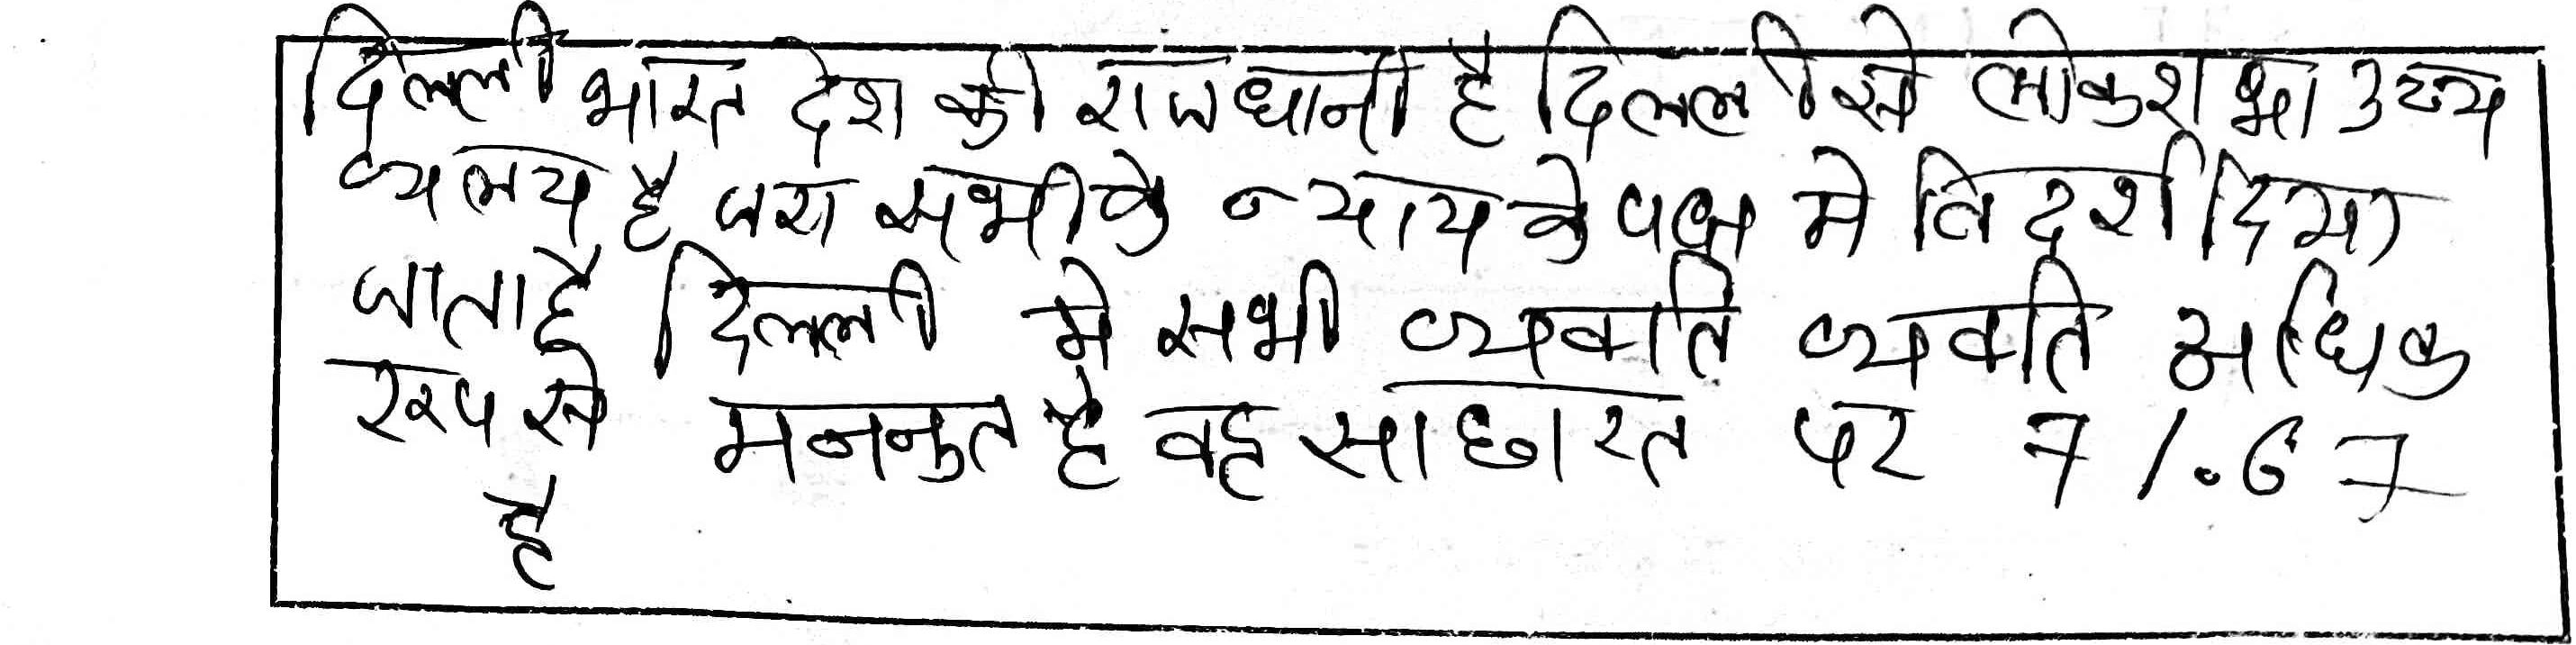 दिल्ली भारत देश की राजधानी है दिल्ली से लोकशभा उच्य
व्यलय है जरा सभी के न्याय के पक्ष मे निदर्श दिया
जाता है दिल्ली मे सभी व्यक्ति व्यक्ति अधिक
रूप से मजबुत है वह साछारत पर 71.67
है